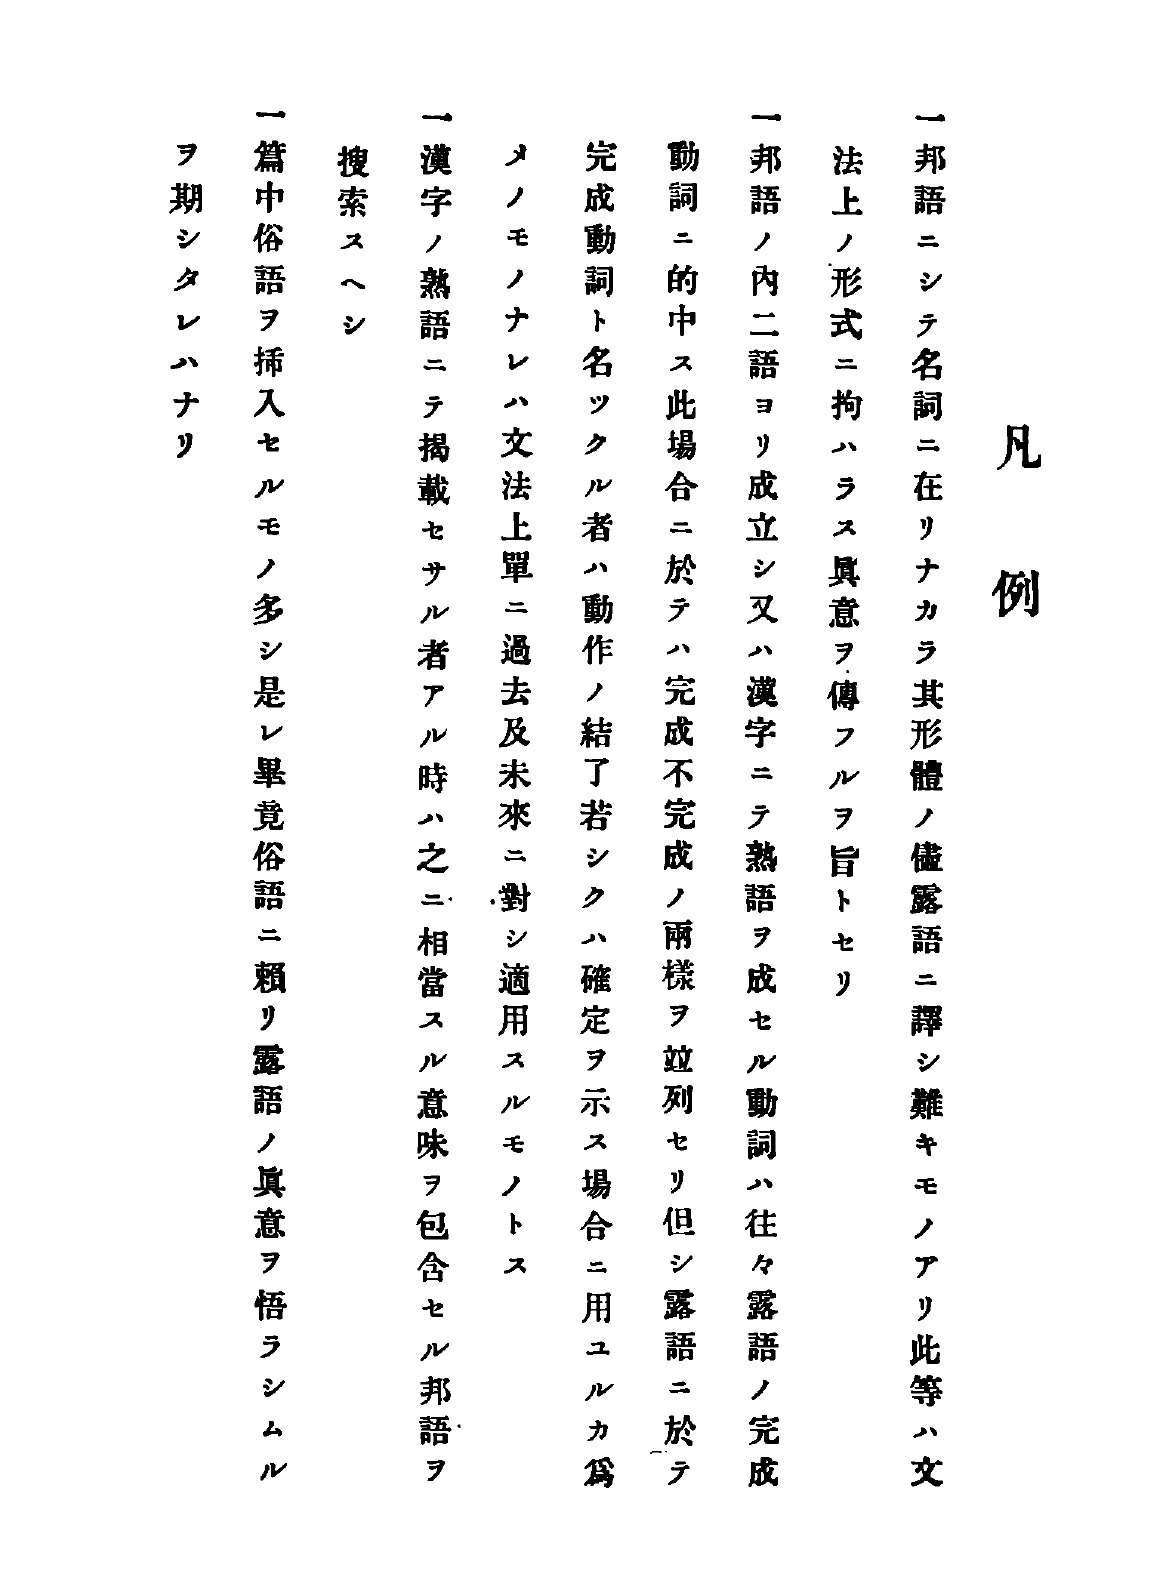 凡例
一邦語ニシテ名詞ニ在リナカラ其形體ノ儘露語ニ譯シ難キモノアリ此等ハ文
法上ノ形式ニ拘ハラス眞意ヲ傳フルヲ旨トセリ
一邦語ノ內二語ヨリ成立シ又ハ漢字ニテ熟語ヲ成セル動詞ハ往々露語ノ完成
動詞ニ的中ス此場合ニ於テハ完成不完成ノ兩樣ヲ竝列セリ但シ露語ニ於テ
完成動詞ト名ツクル者ハ動作ノ結了若シクハ確定ヲ示ス場合ニ用ユルカ爲
メノモノナレハ文法上單ニ過去及未來ニ對シ適用スルモノトス
一漢字ノ熟語ニテ揭載セサル者アル時ハ之ニ相當スル意味ヲ包含セル邦語ヲ
搜索スヘシ
一篇中俗語ヲ揷入セルモノ多シ是レ畢竟俗語ニ賴リ露語ノ眞意ヲ悟ラシムル
ヲ期シタレハナリ